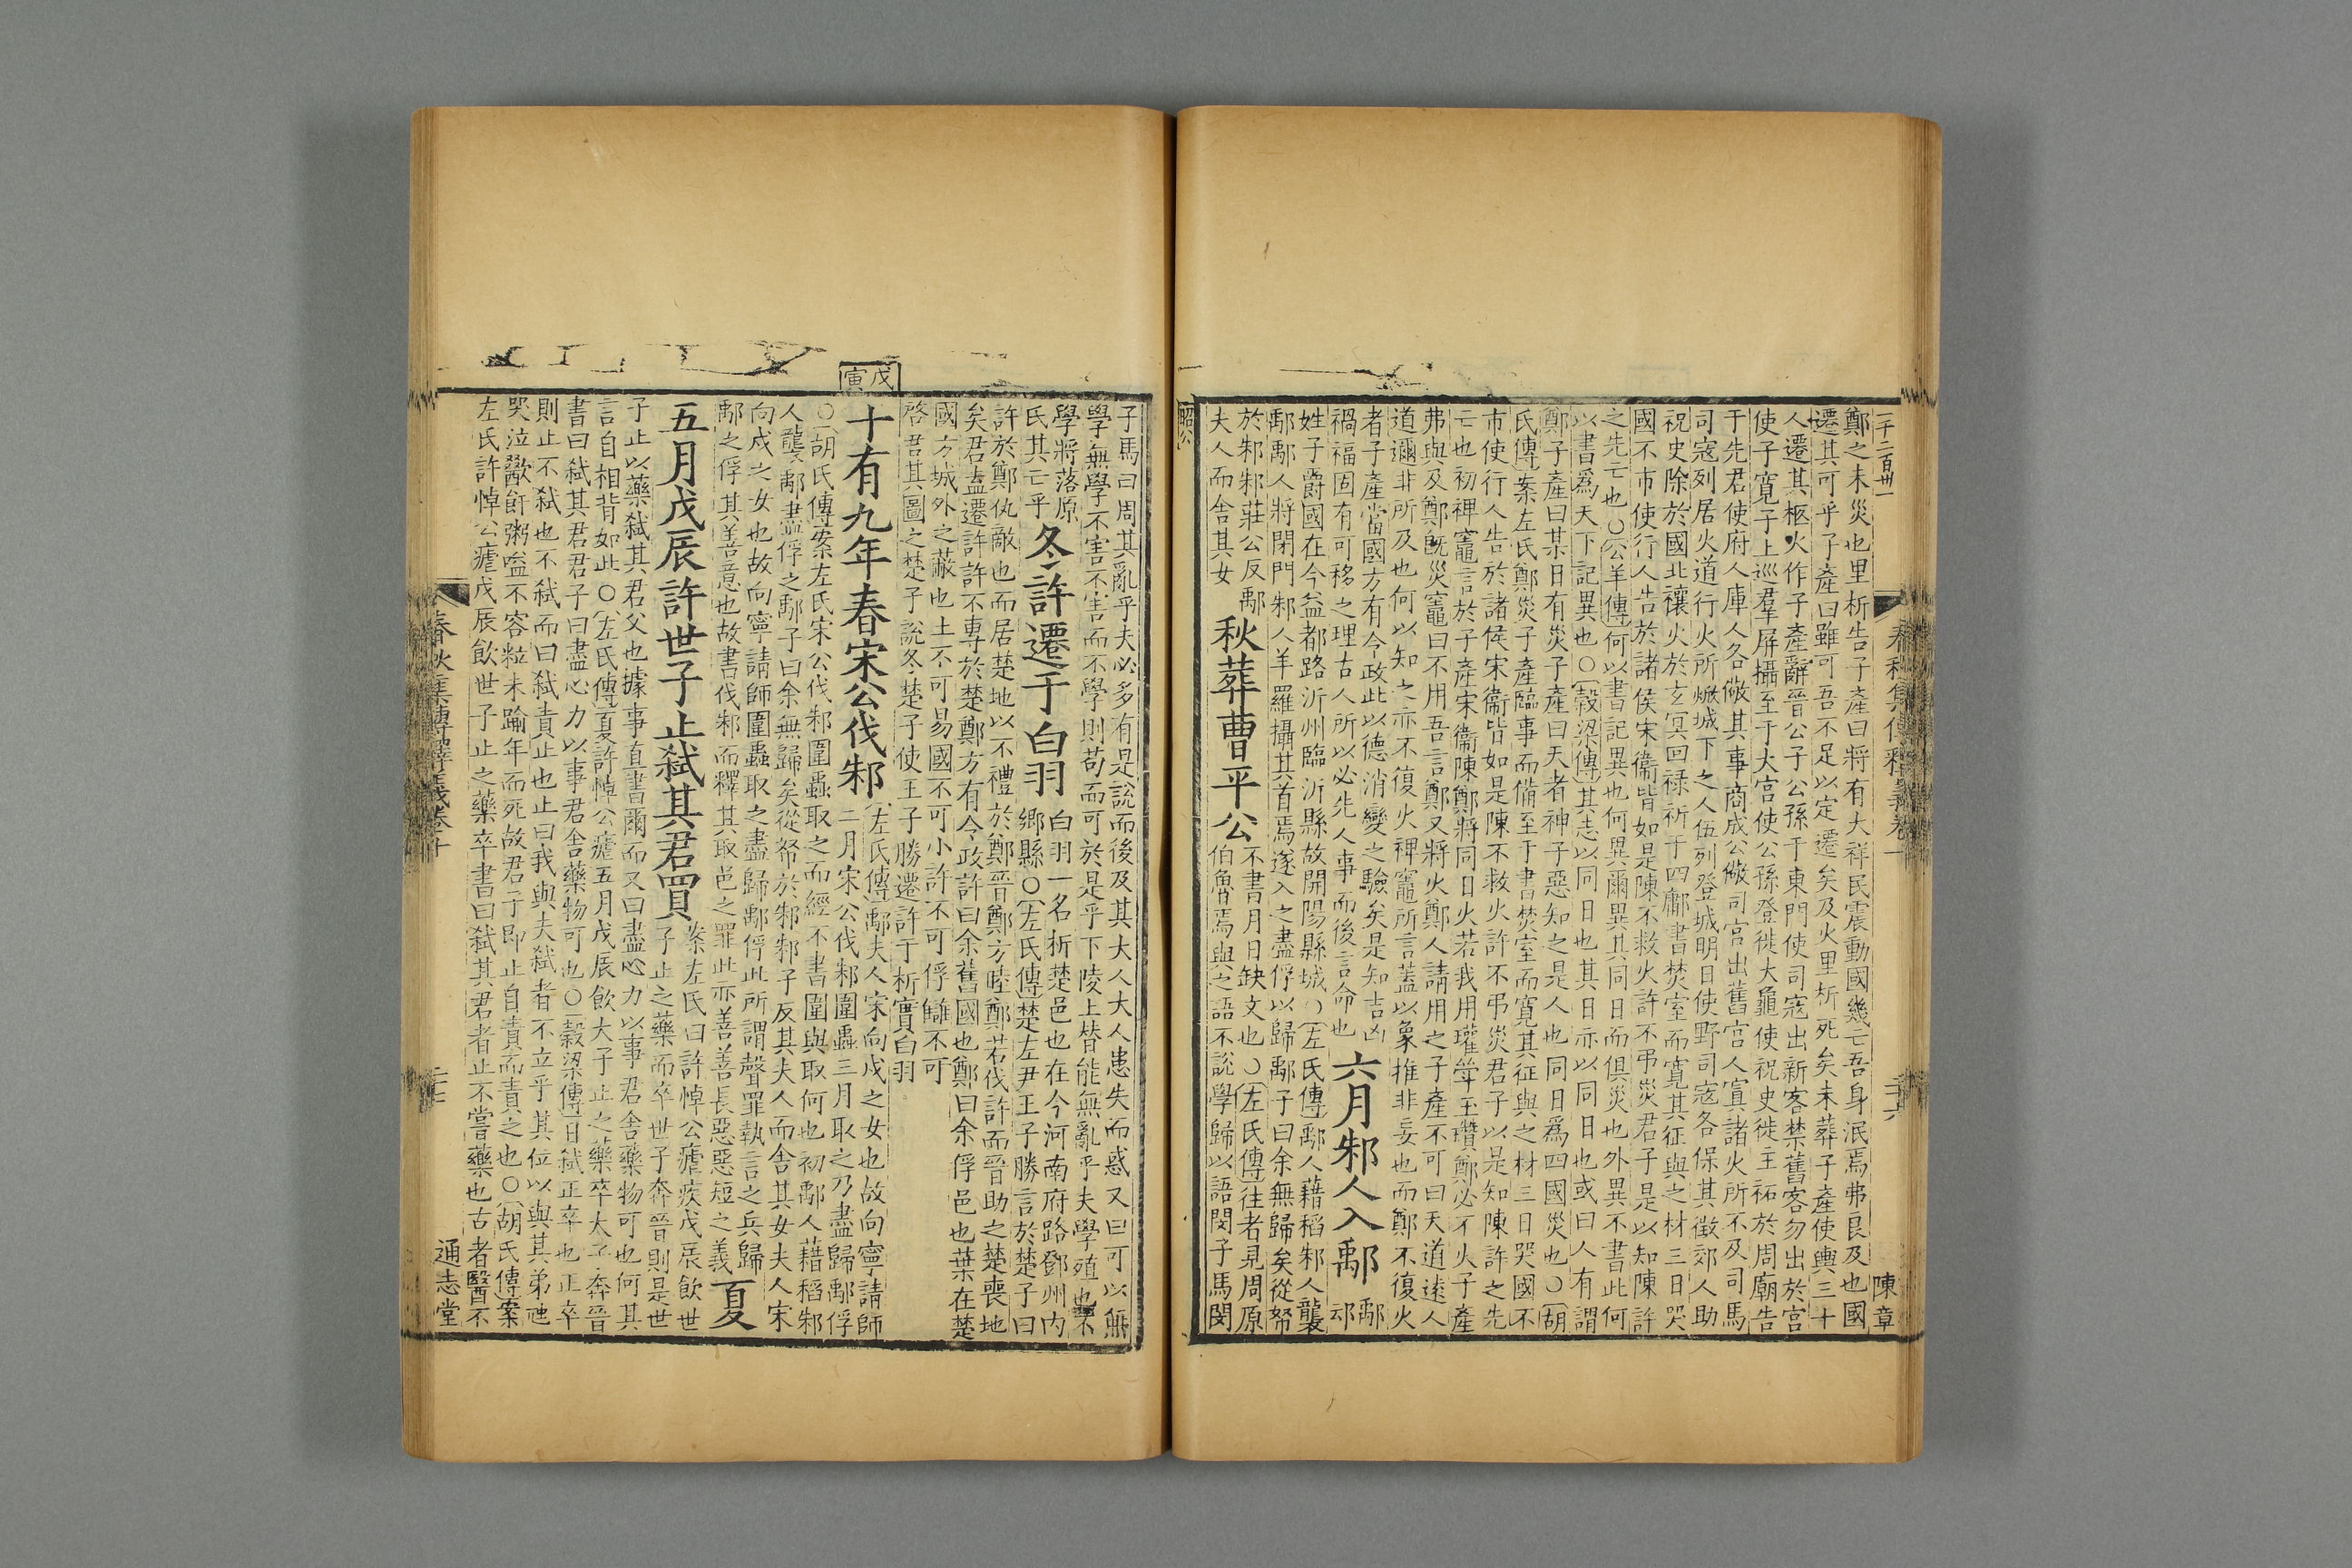 一千二百卅一
陳章
鄭之未災也里析告子產曰將有大祥民震動國幾亡吾身泯焉弗良及也國
遷其可乎子產曰雖可吾不足以定遷矣及火里析死矣未葬子產使輿三十
人遷其柩火作子產辭晉公子公孫于東門使司寇出新客禁舊客勿出於宮
使子寬子上巡羣屏攝至于大宮使公孫登徙大龜使祝史徙主祏於周廟告
于先君使府人庫人各儆其事商成公儆司宮出舊宮人寘諸火所不及司馬
司寇列居火道行火所焮城下之人伍列登城明日使野司寇各保其徵郊人助
祝史除於國北禳火於玄冥回祿祈于四鄘書焚室而寬其征與之材三日哭
國不市使行人告於諸侯宋衞皆如是陳不救火許不弔災君子是以知陳許
之先亡也○公羊傳何以書記異也何異爾異其同日而俱災也外異不書此何
以書爲天下記異也○穀梁傳其志以同日也其日亦以同日也或曰人有謂
鄭子產曰某日有災子產曰天者神子惡知之是人也同日爲四國災也○胡
氏傳案左氏鄭災子產臨事而備至于書焚室而寬其征與之材三日哭國不
市使行人告於諸侯宋衞皆如是陳不救火許不弔災君子以是知陳許之先
亡也初裨竈言於子產宋衞陳鄭將同日火若我用瓘斝玉瓚鄭必不火子產
弗與及鄭旣災竈曰不用吾言鄭又將火鄭人請用之子產不可曰天道遠人
道邇非所及也何以知之亦不復火裨竈所言蓋以象推非妄也而鄭不復火
者子產當國方有令政此以德消變之驗矣是知吉凶
禍福固有可移之理古人所以必先人事而後言命也
六月邾人入鄅
鄅
邧
姓子爵國在今益都路沂州臨沂縣故開陽縣城○左氏傳鄅人藉稻邾人襲
鄅鄅人將閉門邾人羊羅攝其首焉遂入之盡俘以歸鄅子曰余無歸矣從帑
於邾邾莊公反鄅
夫人而舍其女
秋葬曹平公
不書月日缺文也○左氏傳往者見周原
伯魯焉與之語不說學歸以語閔子馬閔
昭公
子馬曰周其亂乎夫必多有是說而後及其大人大人患失而惑又曰可以無
學無學不害不害而不學則苟而可於是乎下陵上替能無亂乎夫學殖也不
學將落原
氏其亡乎
冬許遷于白羽
白羽一名析楚邑也在今河南府路鄧州內
鄉縣○左氏傳楚左尹王子勝言於楚子曰
許於鄭仇敵也而居楚地以不禮於鄭晉鄭方睦鄭若伐許而晉助之楚喪地
矣君盍遷許許不專於楚鄭方有令政許曰余舊國也鄭曰余俘邑也葉在楚
國方城外之蔽也土不可易國不可小許不可俘讎不可
啓君其圖之楚子說冬楚子使王子勝遷許于析實白羽
戊寅
十有九年春宋公伐邾
左氏傳鄅夫人宋向戌之女也故向寧請師
二月宋公伐邾圍蟲三月取之乃盡歸鄅俘
○胡氏傳案左氏宋公伐邾圍蟲取之而經不書圍與取何也初鄅人藉稻邾
人襲鄅盡俘之鄅子曰余無歸矣從帑於邾邾子反其夫人而舍其女夫人宋
向戌之女也故向寧請師圍蟲取之盡歸鄅俘此所謂聲罪執言之兵歸
鄅之俘其善意也故書伐邾而釋其取邑之罪此亦善善長惡惡短之義
夏
五月戊辰許世子止弑其君買
案左氏曰許悼公瘧疾戊辰飲世
子止之藥而卒世子奔晉則是世
子止以藥弑其君父也據事直書爾而又曰盡心力以事君舍藥物可也何其
言自相背如此○左氏傳夏許悼公瘧五月戊辰飲大子止之藥卒太子奔晉
書曰弑其君君子曰盡心力以事君舍藥物可也○穀梁傳日弑正卒也正卒
則止不弑也不弑而曰弑責止也止曰我與夫弑者不立乎其位以與其弟虺
哭泣歠飦粥嗌不容粒未踰年而死故君子即止自責而責之也○胡氏傳案
左氏許悼公瘧戊辰飲世子止之藥卒書曰弑其君者止不嘗藥也古者醫不
通志堂